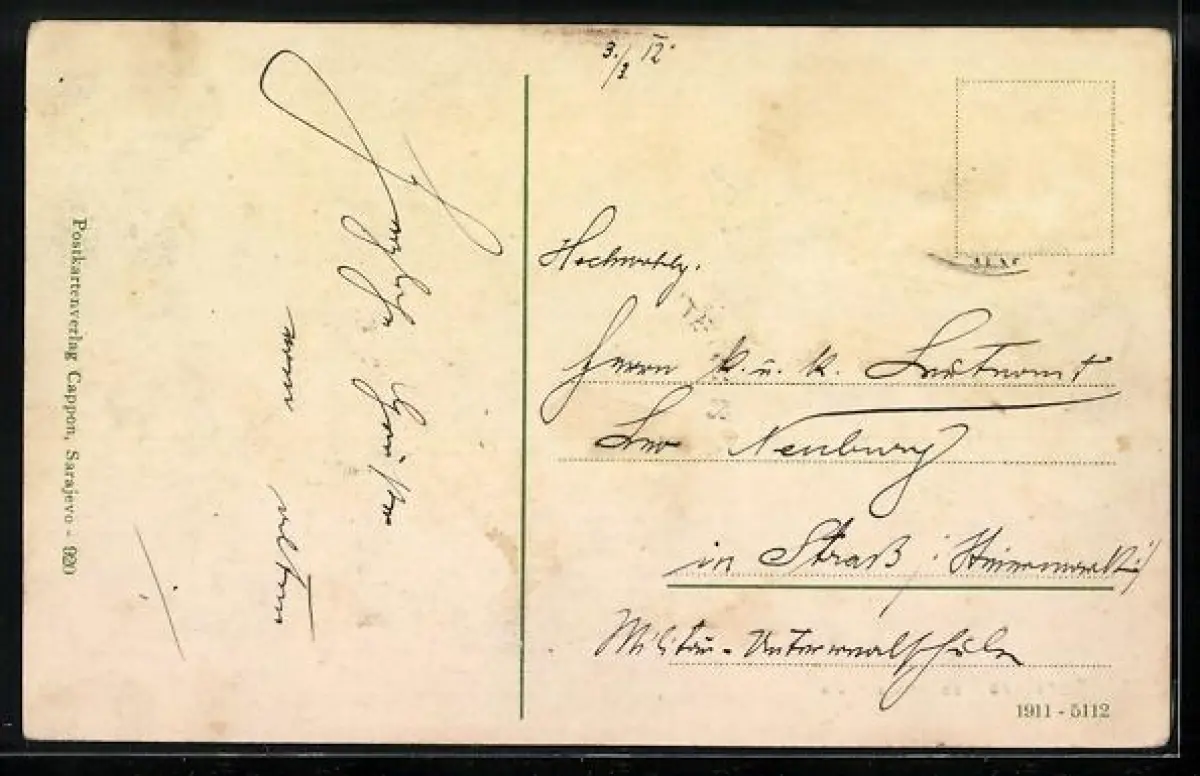 3./1 12.
Herzliche Grüße
von
Postkartenverlag Cappon, Sarajevo - 920
Hochwohlg.
Herrn k. u. k. Leutnant
Leo Neuburg
in Straß (Steiermark)
Militär-Unterrealschule
1911 - 5112